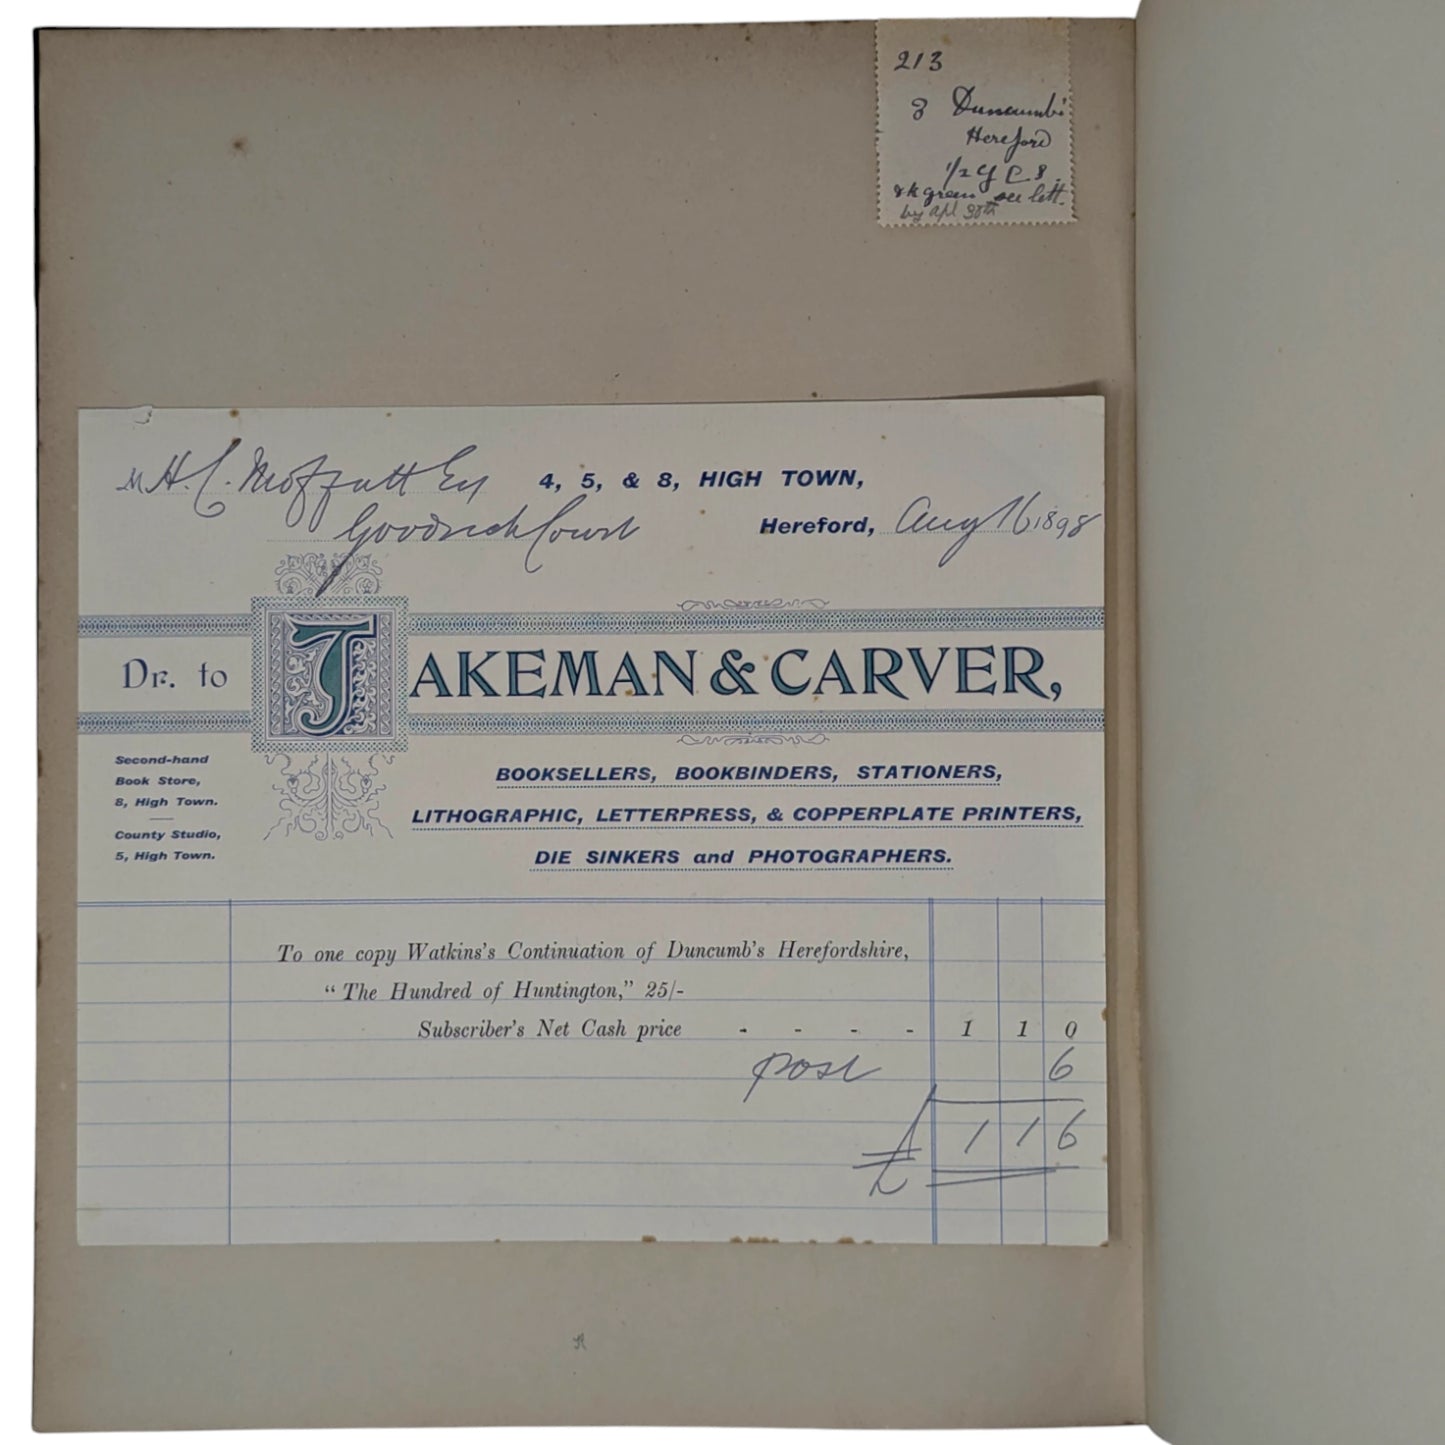 213
3 Duncumb's
Hereford
1/2 G C 8.
dk green see lett.
by Apl 30th
H. C. Moffatt Esq
4, 5, & 8, HIGH TOWN,
Goodrich Court
Hereford, Aug 16 1898
Dr. to JAKEMAN & CARVER,
Second-hand
Book Store,
8, High Town.
County Studio,
5, High Town.
BOOKSELLERS, BOOKBINDERS, STATIONERS,
LITHOGRAPHIC, LETTERPRESS, & COPPERPLATE PRINTERS,
DIE SINKERS and PHOTOGRAPHERS.
To one copy Watkins's Continuation of Duncumb's Herefordshire,
"The Hundred of Huntington," 25/-
Subscriber's Net Cash price - - - - 1 1 0
post 6
£ 1 1 6